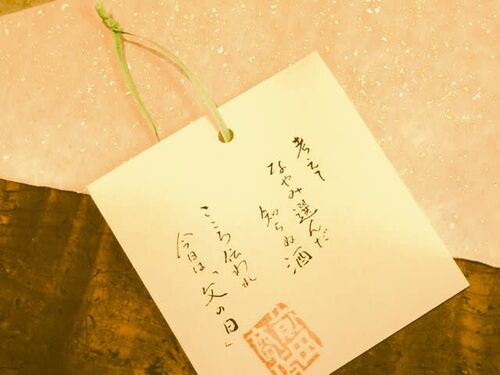 考えて
なやみ選んだ
知らぬ酒
こころ伝われ
今日は「父の日」